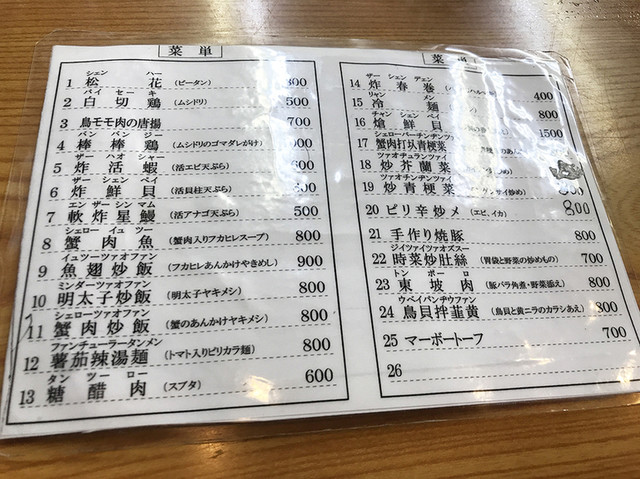 菜単
シェン ハー
1 松花 (ピータン) 300
バイ セー キ
2 白切鶏 (ムシドリ) 500
3 鳥モモ肉の唐揚 700
バン バン ジー
4 棒棒鶏 (ムシドリのゴマダレがけ) 600
ザー ハオ シャー
5 炸活蝦 (活エビ天ぷら) 600
ザー シェン ベイ
6 炸鮮貝 (活貝柱天ぷら) 600
エン ザー シン マム
7 軟炸星鰻 (活アナゴ天ぷら) 500
シェロー イュ ツー
8 蟹肉魚 (蟹肉入りフカヒレスープ) 800
イュツーツァオファン
9 魚翅炒飯 (フカヒレあんかけやきめし) 900
ミンダーツァオファン
10 明太子炒飯 (明太子ヤキメシ) 800
シェローツァオファン
11 蟹肉炒飯 (蟹のあんかけヤキメシ) 800
ファンチューラータンメン
12 蕃茄辣湯麺 (トマト入りピリカラ麺) 800
タン ツー ロー
13 糖醋肉 (スブタ) 600
菜単
ザー シェン デェン
14 炸春巻 400
リャン メン
15 冷麺 800
チャン シェン ベイ
16 熗鮮貝 1500
シェローパーチンヂンファ
17 蟹肉打从青梗菜
ツァオチュランファイ
18 炒芥蘭菜
ツァオチンヂンファイ
19 炒青梗菜
20 ピリ辛炒メ (エビ、イカ) 800
21 手作り焼豚 800
ジイツァイツァオズスー
22 時菜炒肚絲 (胃袋と野菜の炒めもの) 700
トン ポー ロ
23 東坡肉 (豚バラ角煮・野菜添え) 800
ウベイバンヂウファン
24 鳥貝拌韮黄 (鳥貝と黄ニラのカラシあえ) 800
25 マーボートーフ 700
26